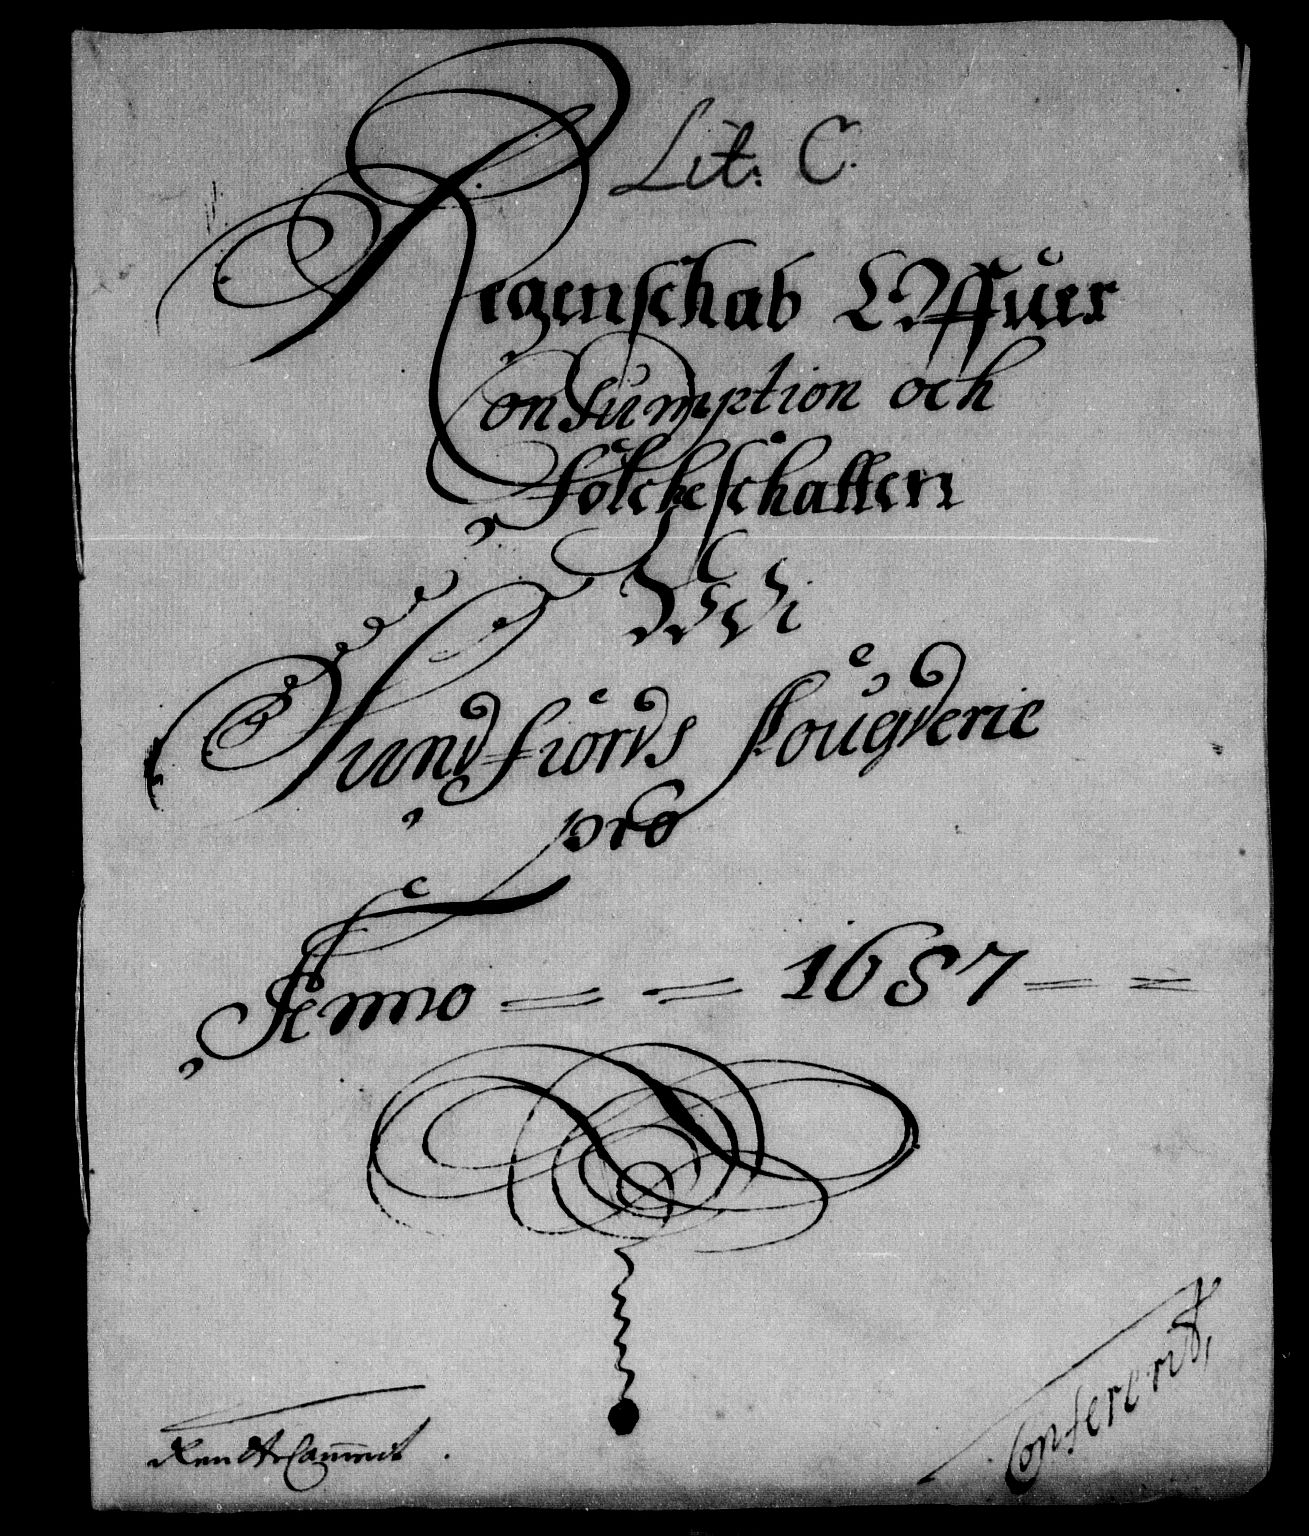 Lit: C.
Regenschab Offuer
Consumption och
Folckeschatten
Udi
Sundfiords Fougderie
pro
Anno = = 1687 = =
Rendte Cammer.
Confererit,